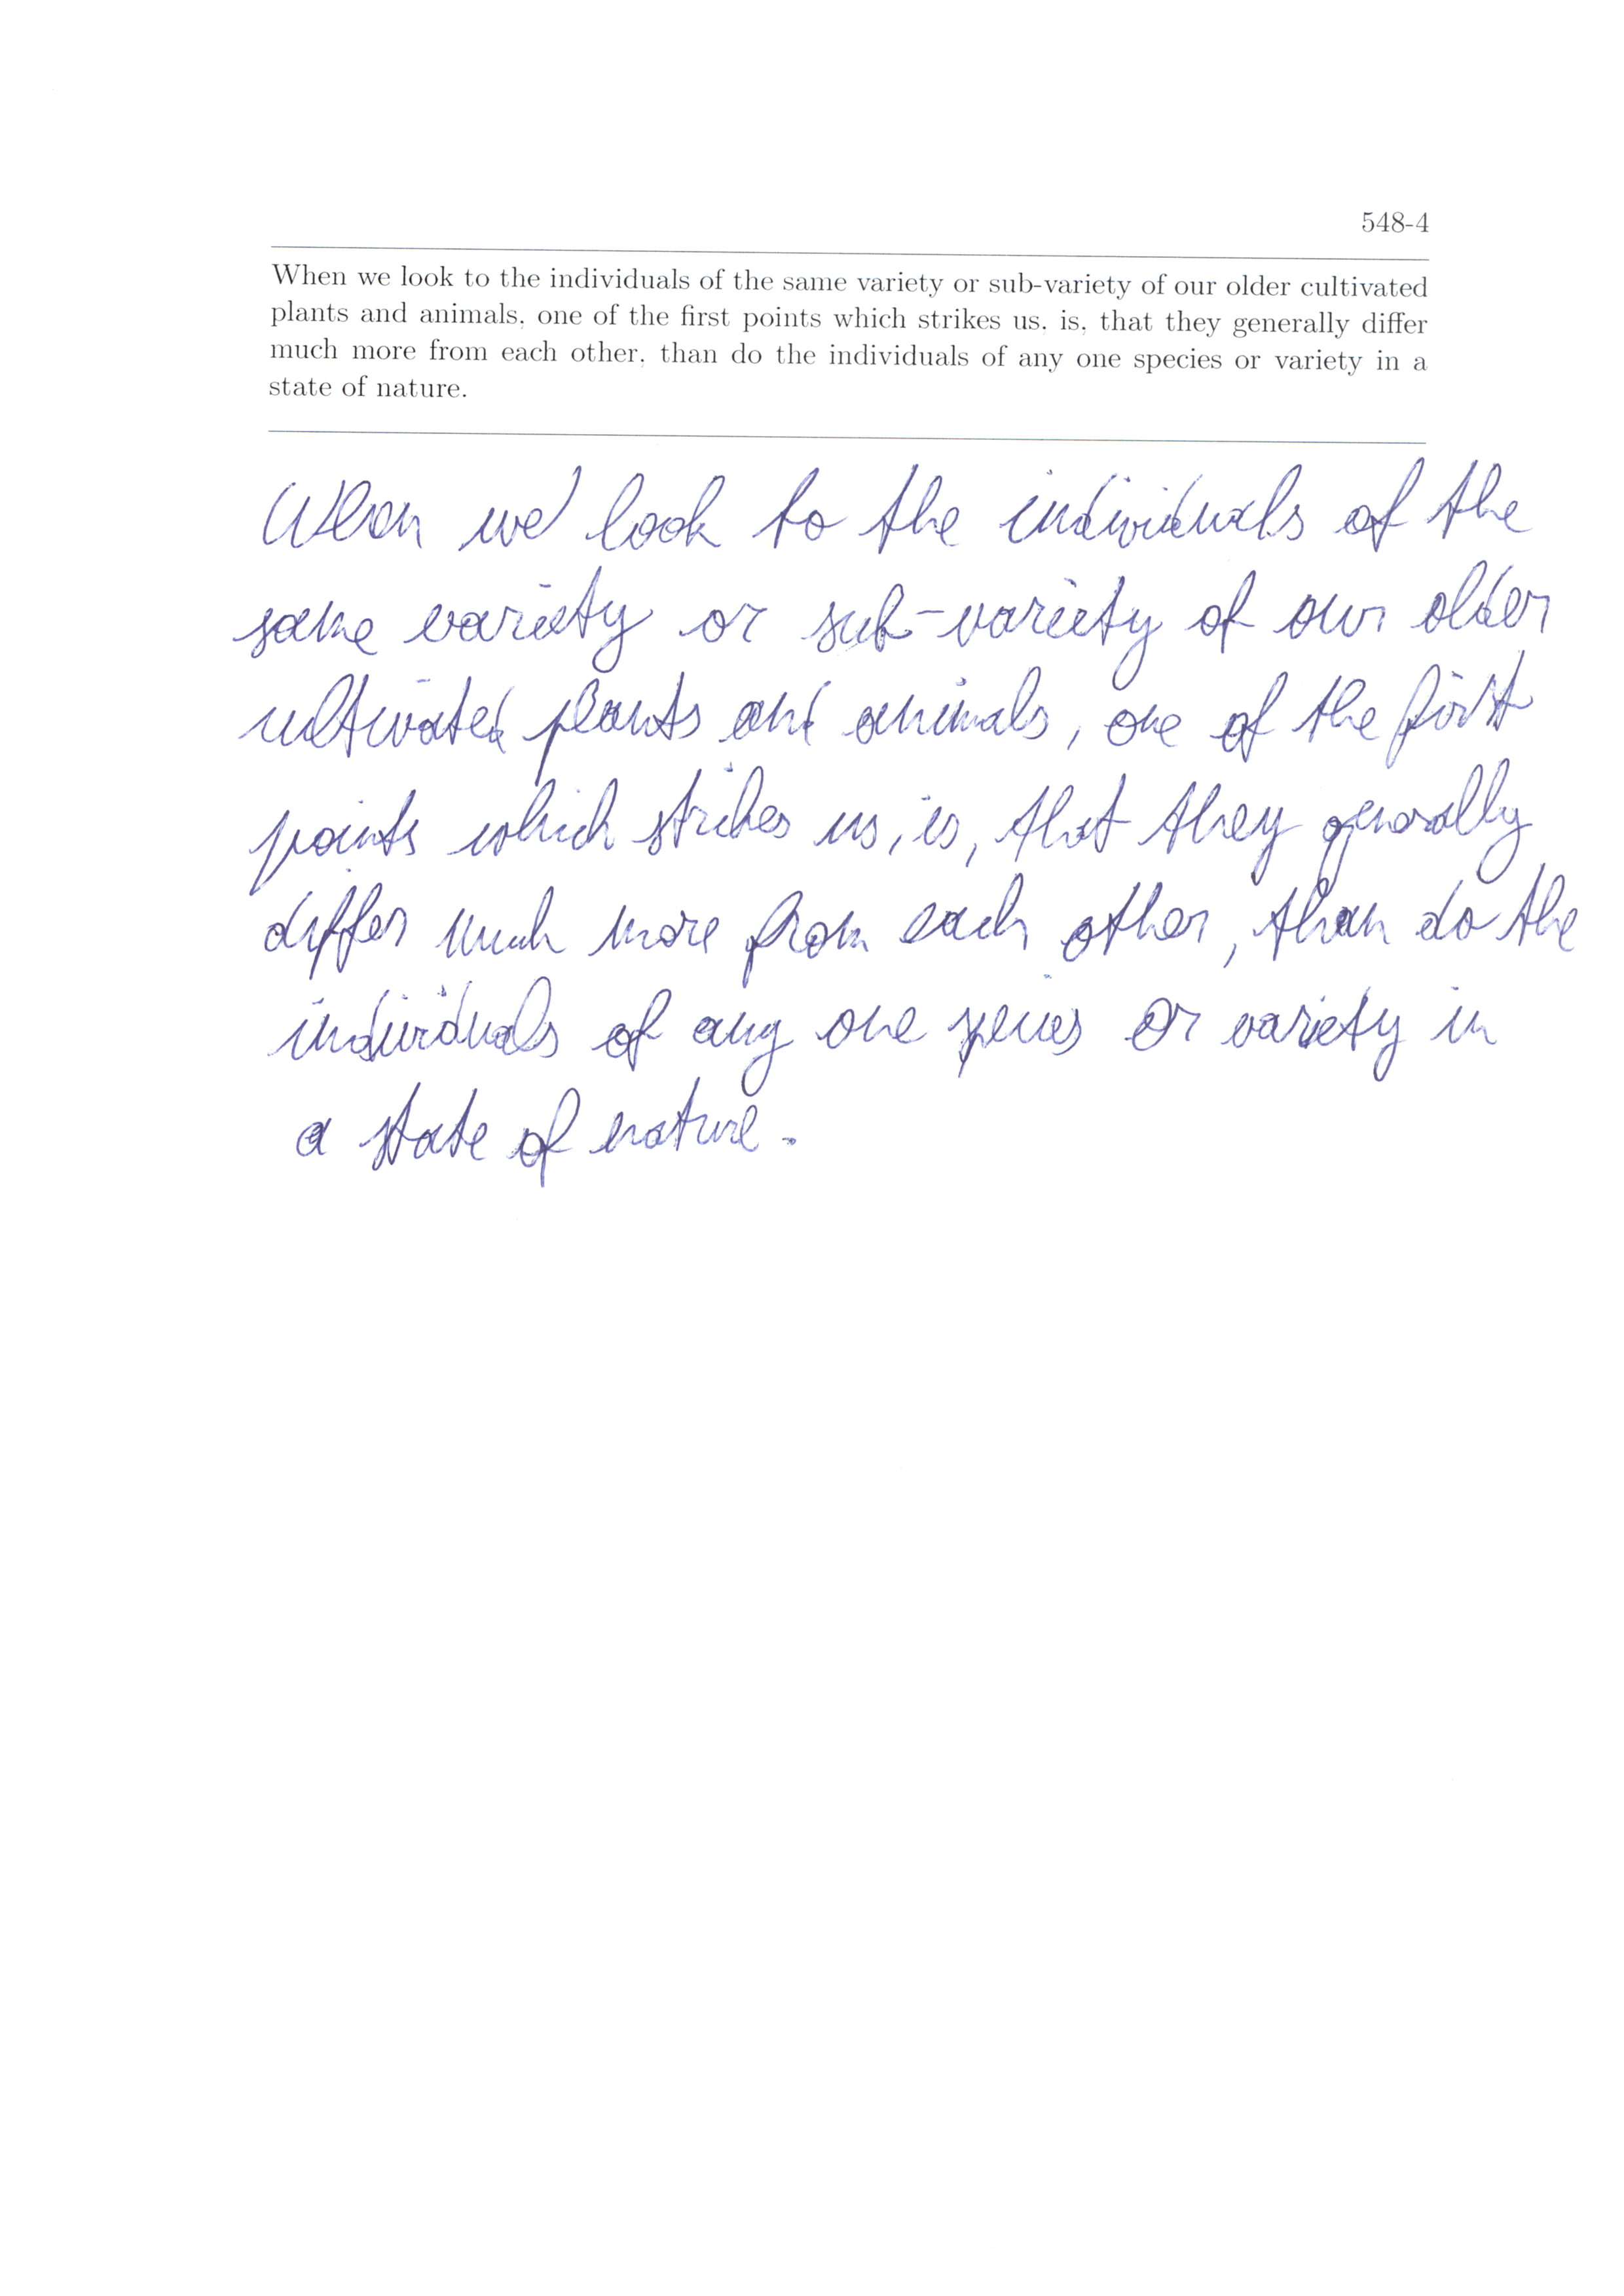 548-4
When we look to the individuals of the same variety or sub-variety of our older cultivated
plants and animals, one of the first points which strikes us, is, that they generally differ
much more from each other, than do the individuals of any one species or variety in a
state of nature.
When we look to the individuals of the
same variety or sub-variety of our older
cultivated plants and animals, one of the first
points which strikes us, is, that they generally
differ much more from each other, than do the
individuals of any one species or variety in
a state of nature.